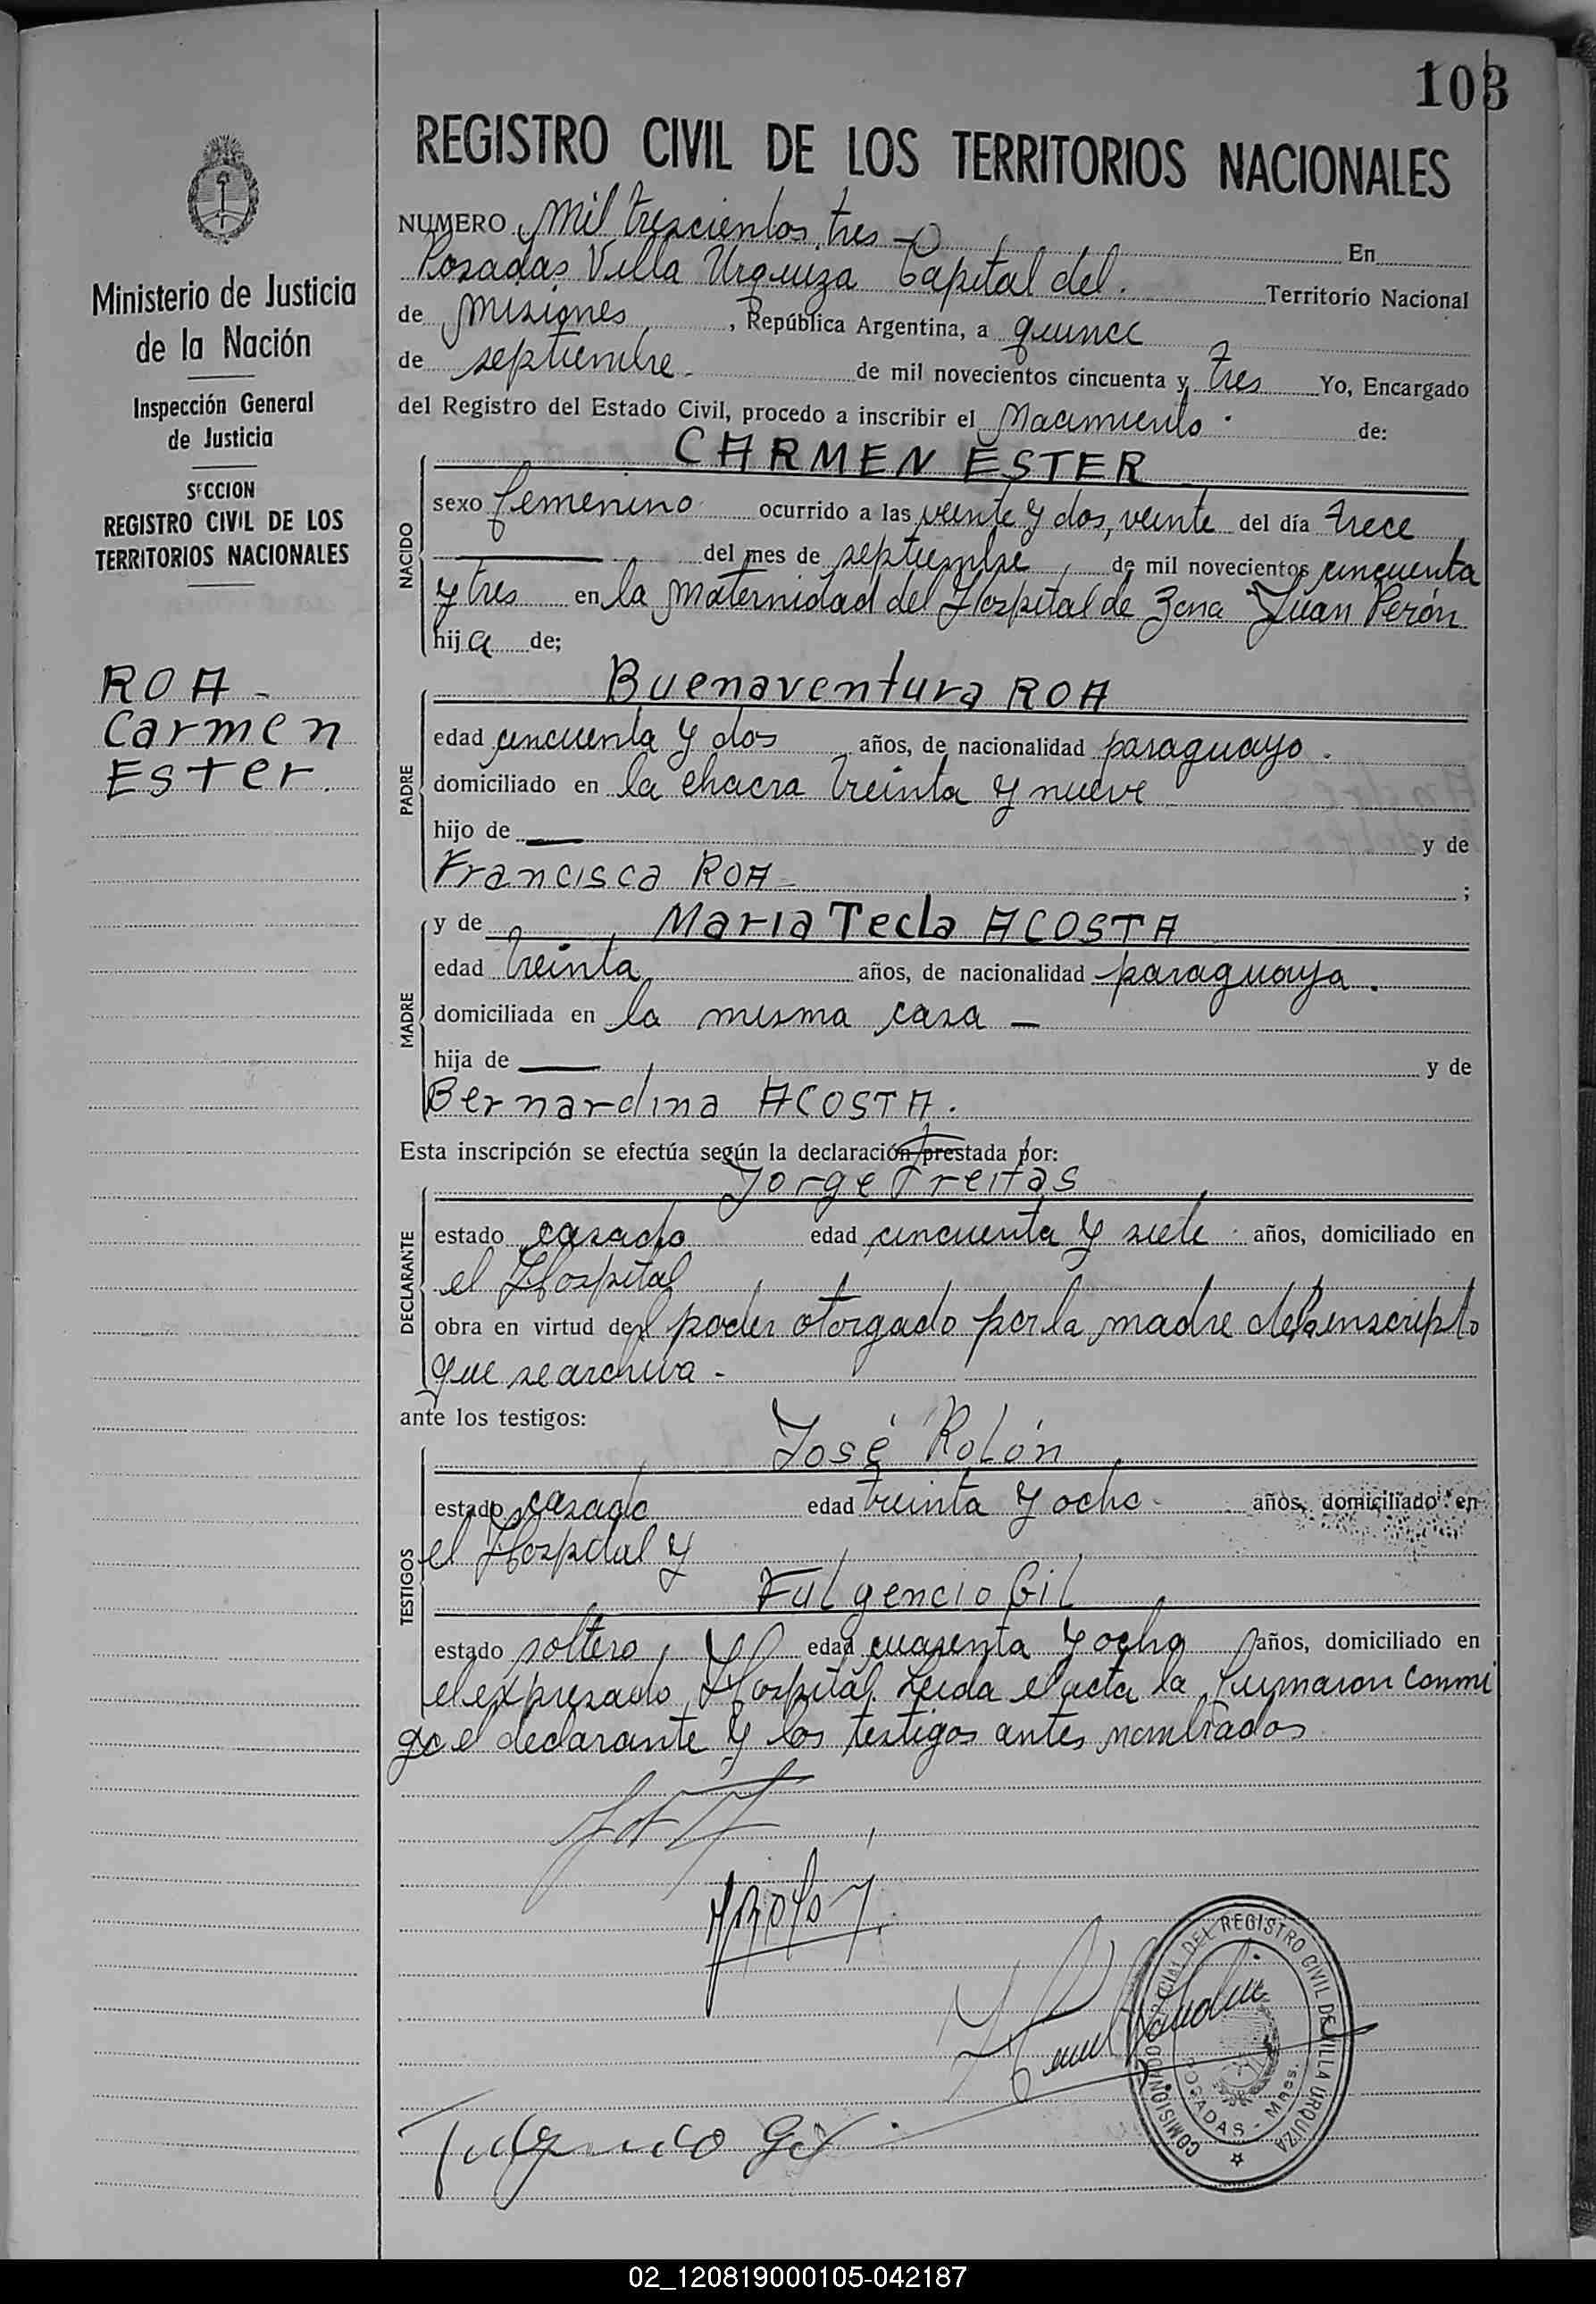 103
REGISTRO CIVIL DE LOS TERRITORIOS NACIONALES
Ministerio de Justicia
de la Nación
Inspección General
de Justicia
SECCION
REGISTRO CIVIL DE LOS
TERRITORIOS NACIONALES
ROA -
Carmen
Ester.
NUMERO Mil trescientos tres En
Posadas Villa Urquiza Capital del. Territorio Nacional
de Misiones, República Argentina, a quince
de septiembre - de mil novecientos cincuenta y tres Yo, Encargado
del Registro del Estado Civil, procedo a inscribir el Nacimiento de:
CARMEN ESTER
NACIDO
sexo femenino ocurrido a las veinte y dos, veinte del día trece
del mes de septiembre de mil novecientos cincuenta
y tres en la Maternidad del Hospital de Zona Juan Perón
hij a de;
Buenaventura ROA
PADRE
edad cincuenta y dos años, de nacionalidad paraguayo.
domiciliado en la chacra treinta y nueve
hijo de — y de
Francisca ROA - ;
y de Maria Tecla ACOSTA
MADRE
edad treinta años, de nacionalidad paraguaya.
domiciliada en la misma casa —
hija de — y de
Bernardina ACOSTA.
Esta inscripción se efectúa según la declaración prestada por:
Jorge Freitas
DECLARANTE
estado casado edad cincuenta y siete años, domiciliado en
el Hospital
obra en virtud del poder otorgado por la madre de la inscripto
que se archiva -
ante los testigos:
José Rolón
TESTIGOS
estado casado edad treinta y ocho años, domiciliado en
el Hospital y
Fulgencio Gil
estado soltero edad cuarenta y ocho años, domiciliado en
el expresado Hospital. Leida el acta la firmaron conmi
go el declarante y los testigos antes nombrados
Fulgencio Gil
COMISIONADO DEL REGISTRO CIVIL DE VILLA URQUIZA
POSADAS - Mnes.
02_120819000105-042187